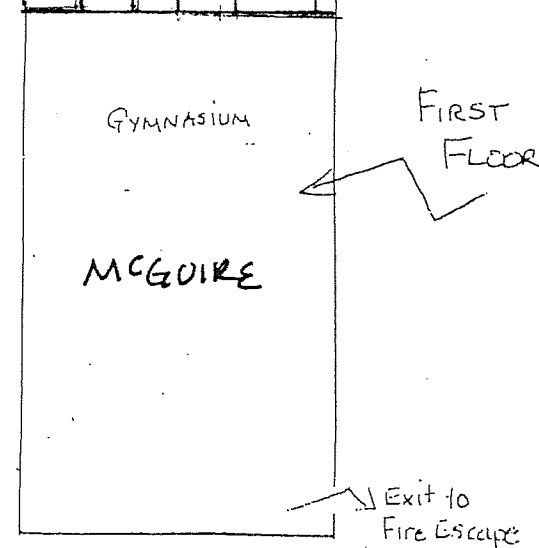 GYMNASIUM
FIRST
FLOOR
McGUIRE
Exit to
Fire Escape